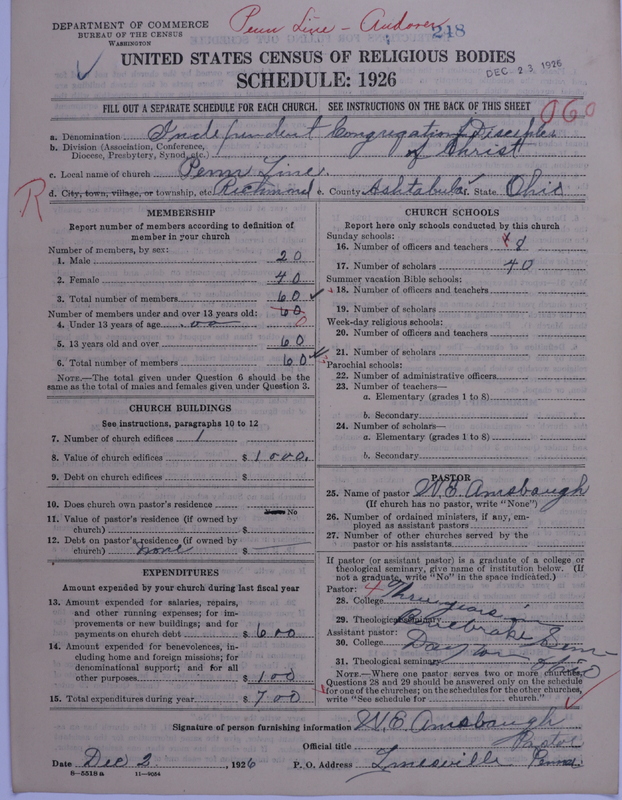 DEPARTMENT OF COMMERCE
BUREAU OF THE CENSUS
WASHINGTON
Penn Line - Andover
218
UNITED STATES CENSUS OF RELIGIOUS BODIES
DEC 23 1926
SCHEDULE: 1926
FILL OUT A SEPARATE SCHEDULE FOR EACH CHURCH. SEE INSTRUCTIONS ON THE BACK OF THIS SHEET
060
a. Denomination Independent Congregation Disciples
b. Division (Association, Conference, Diocese, Presbytery, Synod, etc.) of Christ
c. Local name of church Penn Line
R
d. City, town, village, or township, etc. Richmond e. County Ashtabula f. State Ohio
MEMBERSHIP
Report number of members according to definition of
member in your church
Number of members, by sex:
1. Male 20
2. Female 40
3. Total number of members 60
Number of members under and over 13 years old: 60
4. Under 13 years of age 0
5. 13 years old and over 60
6. Total number of members 60
NOTE.—The total given under Question 6 should be the
same as the total of males and females given under Question 3.
CHURCH BUILDINGS
See instructions, paragraphs 10 to 12
7. Number of church edifices 1
8. Value of church edifices $ 1000.
9. Debt on church edifices $
10. Does church own pastor's residence No
11. Value of pastor's residence (if owned by
church) $
12. Debt on pastor's residence (if owned by
church) none $
EXPENDITURES
Amount expended by your church during last fiscal year
13. Amount expended for salaries, repairs,
and other running expenses; for im-
provements or new buildings; and for
payments on church debt $ 600
14. Amount expended for benevolences, in-
cluding home and foreign missions; for
denominational support; and for all
other purposes $ 100
15. Total expenditures during year $ 700
CHURCH SCHOOLS
Report here only schools conducted by this church
Sunday schools:
16. Number of officers and teachers 8
17. Number of scholars 40
Summer vacation Bible schools:
18. Number of officers and teachers
19. Number of scholars
Week-day religious schools:
20. Number of officers and teachers
21. Number of scholars
Parochial schools:
22. Number of administrative officers
23. Number of teachers—
a. Elementary (grades 1 to 8)
b. Secondary
24. Number of scholars—
a. Elementary (grades 1 to 8)
b. Secondary
PASTOR
25. Name of pastor W.E. Amsbaugh
(If church has no pastor, write "None")
26. Number of ordained ministers, if any, em-
ployed as assistant pastors
27. Number of other churches served by the
pastor or his assistants
If pastor (or assistant pastor) is a graduate of a college or
theological seminary, give name of institution below. (If
not a graduate, write "No" in the space indicated.)
Pastor:
28. College Three years in
29. Theological seminary Bonebrake Sem
Assistant pastor:
30. College Dayton
31. Theological seminary Ohio
NOTE.—Where one pastor serves two or more churches,
Questions 28 and 29 should be answered only on the schedule
for one of the churches; on the schedules for the other churches,
write "See schedule for church."
Signature of person furnishing information W.E. Amsbaugh
Official title Pastor
Date Dec 2, 1926 P. O. Address Linesville Penna.
8—5518 a 11—9054